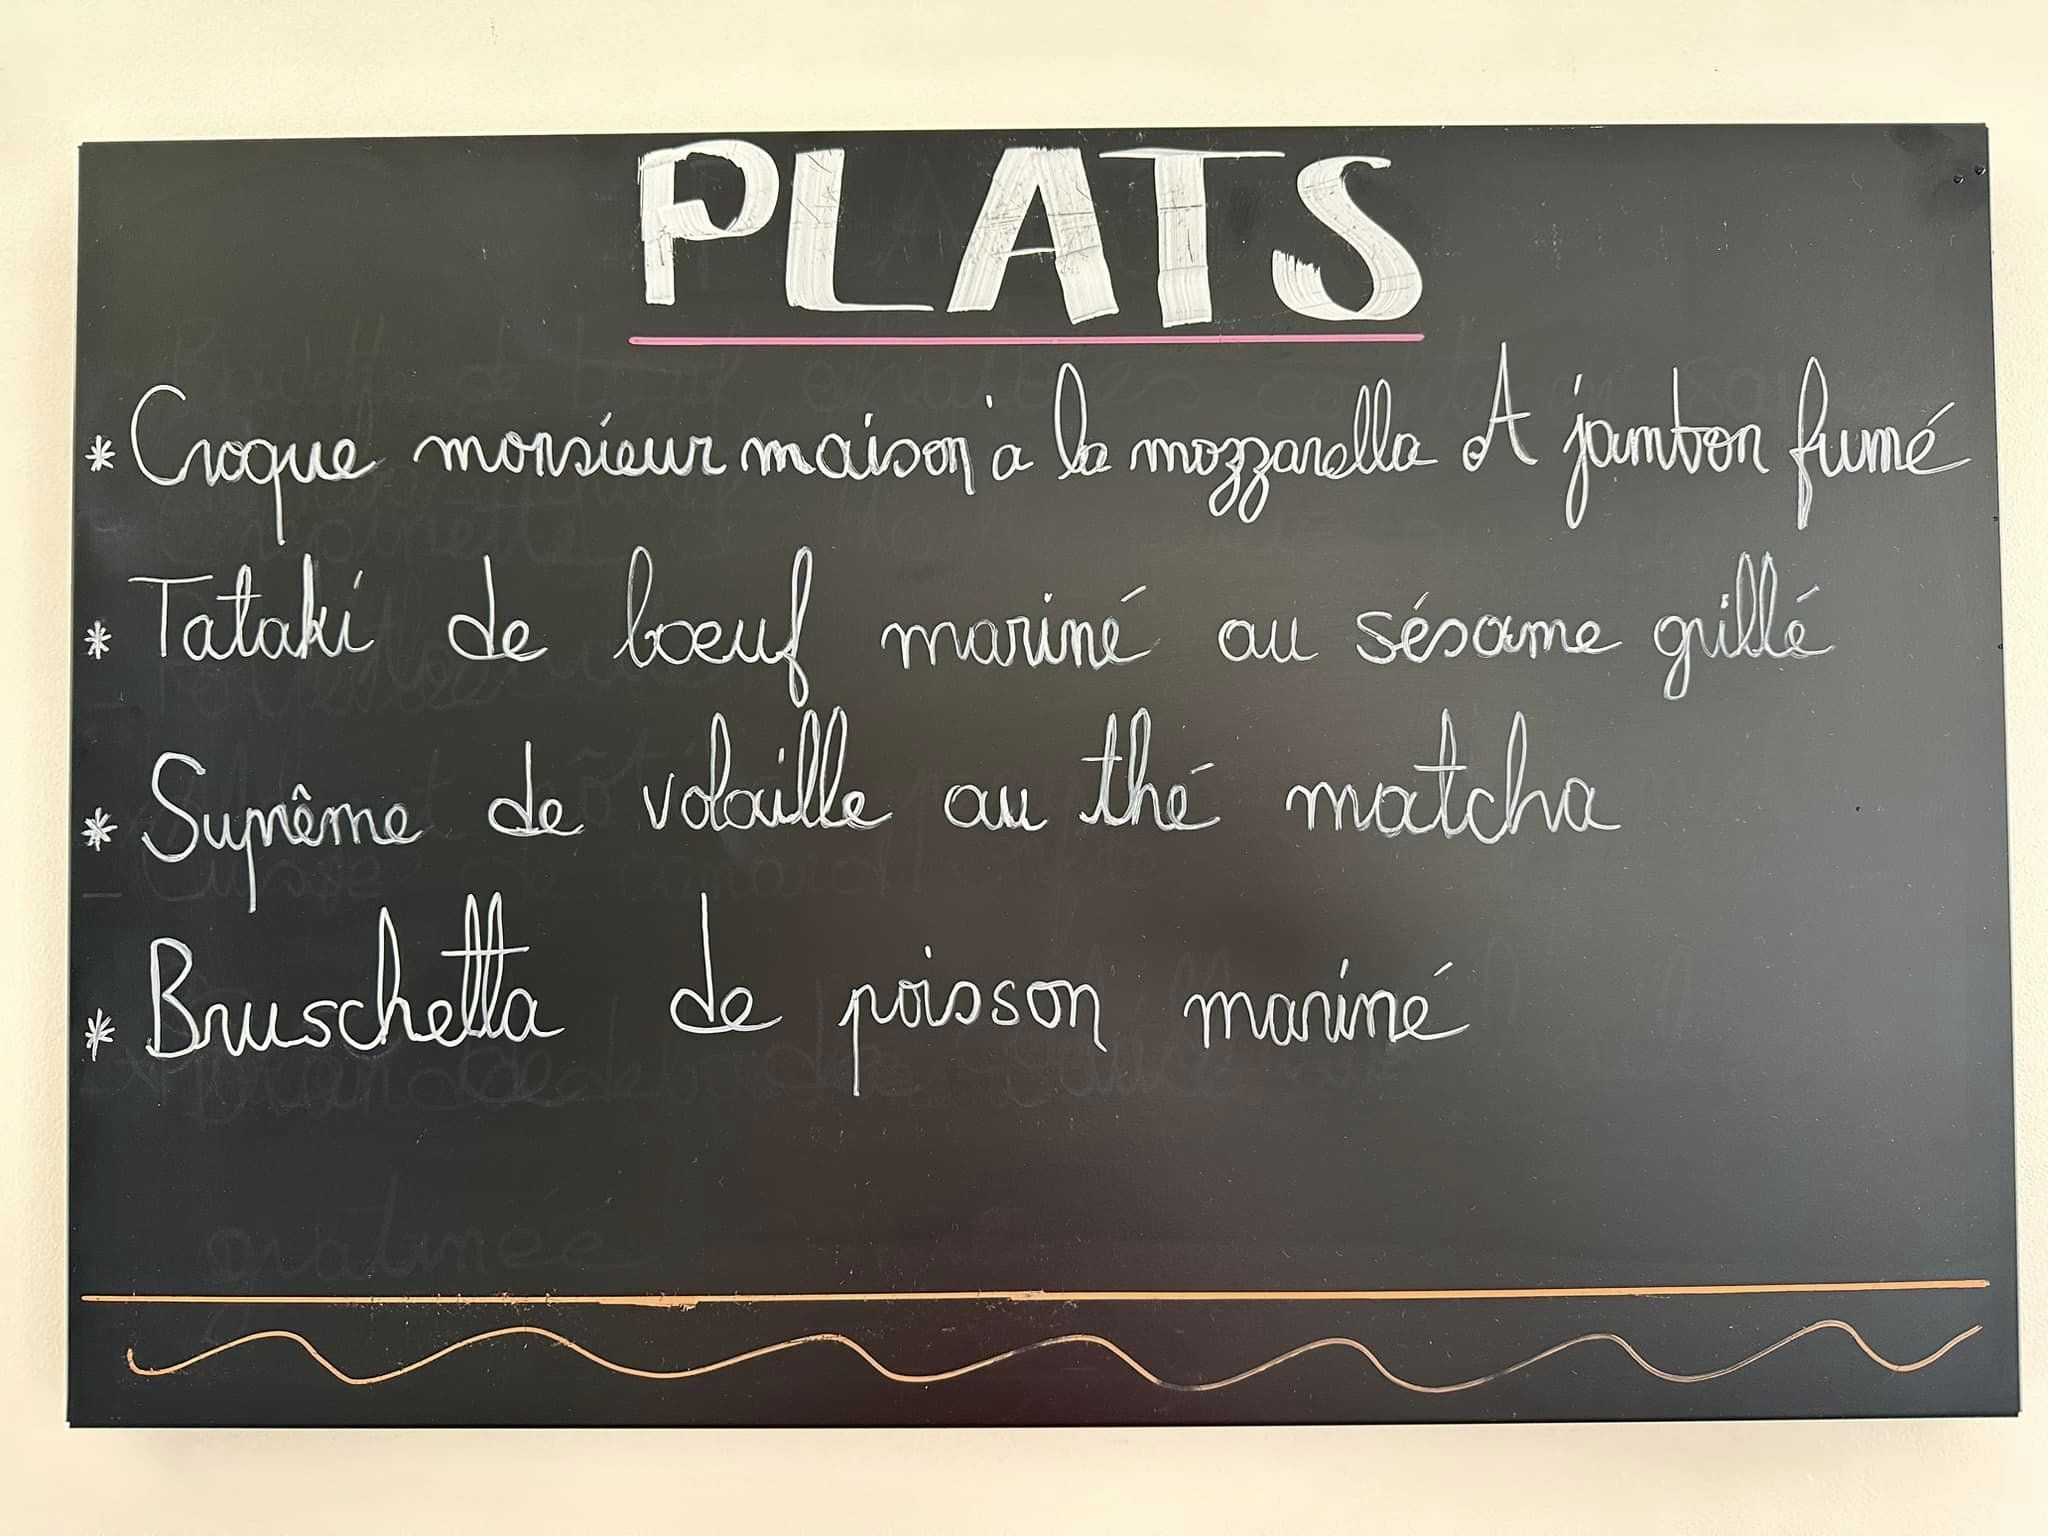 PLATS
* Croque monsieur maison à la mozzarella & jambon fumé
* Tataki de bœuf mariné au sésame grillé
* Suprême de volaille au thé matcha
* Bruschetta de poisson mariné
gratinée